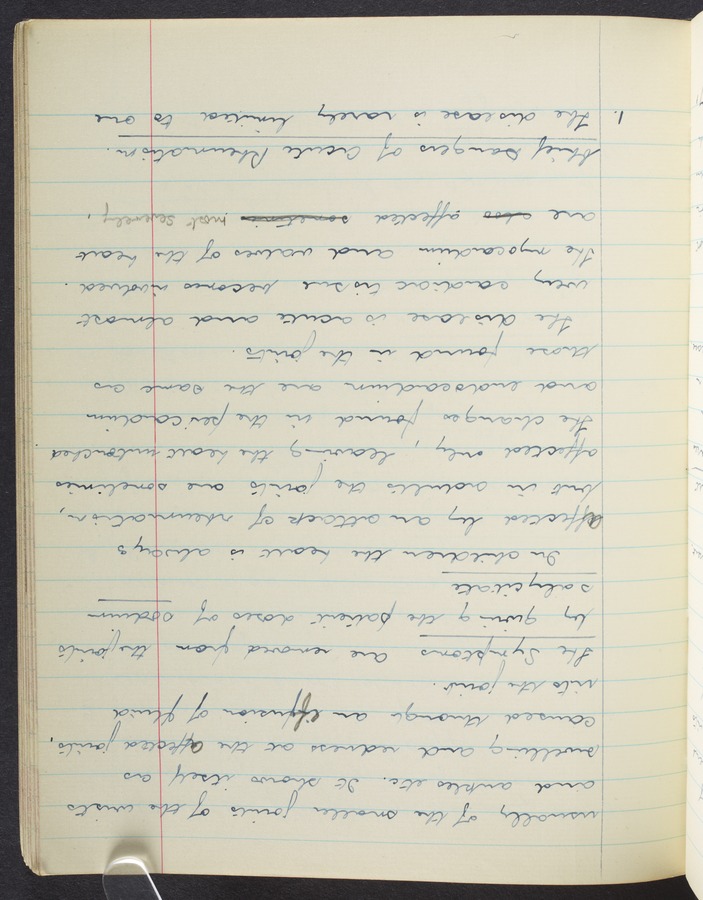 usually of the smaller joints of the wrists
and ankles etc. It shows itself as
swelling and redness at the affected joints,
caused through an effusion of fluid
into the joint.
The Symptoms are removed from the joints
by giving the patient doses of sodium
salycilate
In children the heart is always
affected by an attack of rheumatism,
but in adults the joints are sometimes
affected only, leaving the heart untouched
The changes found in the pericardium
and endocardium are the same as
those found in the joints.
The disease is acute and almost
every cardiac tissue becomes involved.
The myocardium and valves of the heart
are also affected most severely,
Chief Dangers of Acute Rheumatism.
1. The disease is rarely limited to one